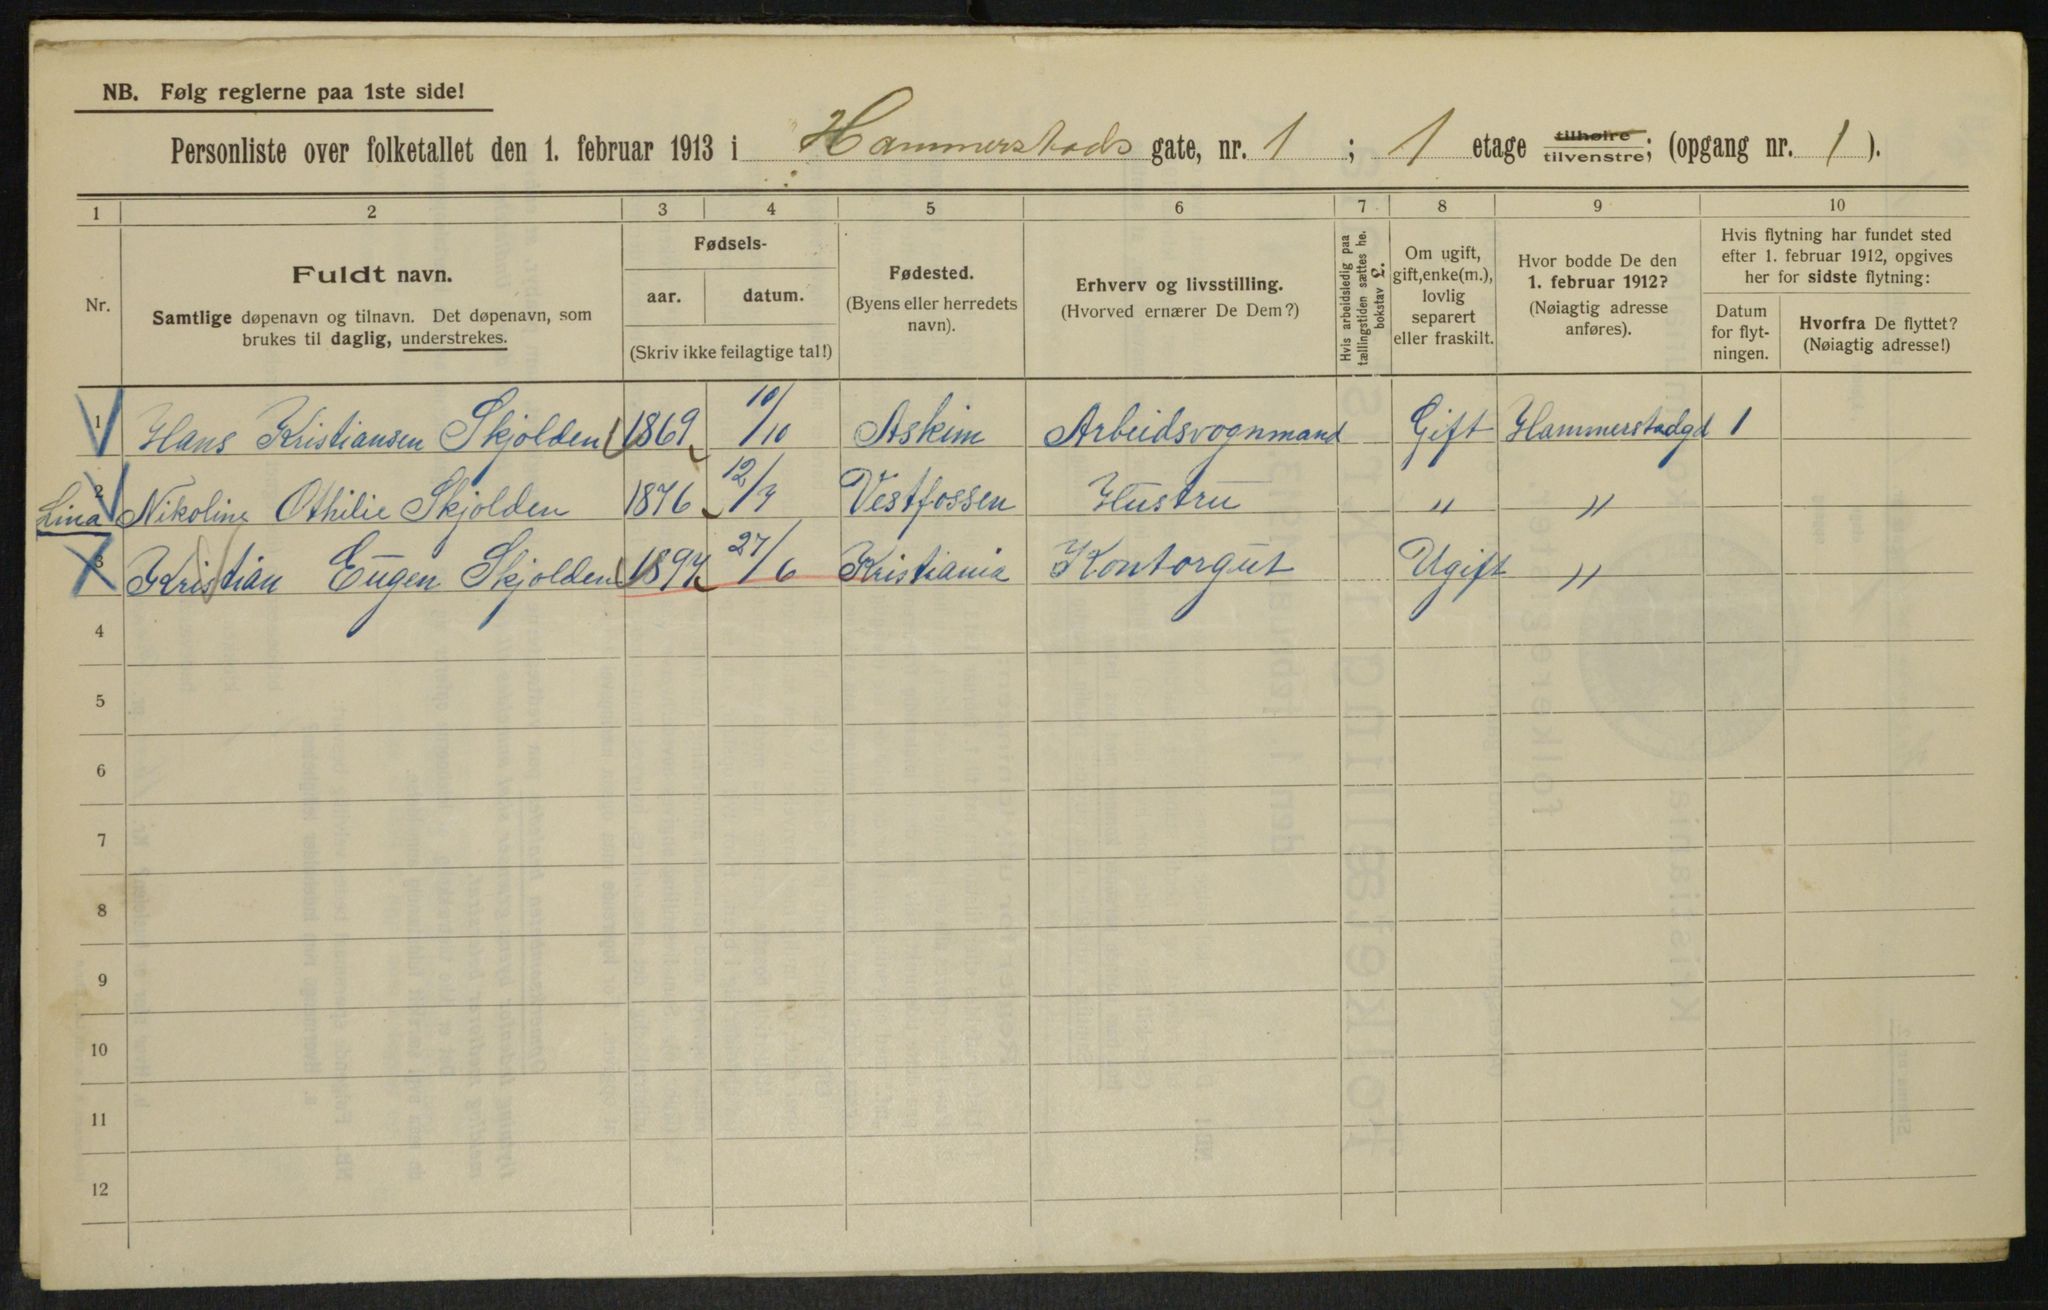 NB. Følg reglerne paa 1ste side!
Personliste over folketallet den 1. februar 1913 i Hammerstads gate, nr. 1 ; 1 etage tilhøire tilvenstre; (opgang nr. 1 ).
1 2 3 4 5 6 7 8 9 10
Nr.
Fuldt navn.
Samtlige døpenavn og tilnavn. Det døpenavn, som
brukes til daglig, understrekes.
Fødsels-
aar. datum.
(Skriv ikke feilagtige tal!)
Fødested.
(Byens eller herredets
navn).
Erhverv og livsstilling.
(Hvorved ernærer De Dem?)
Hvis arbeidsledig paa
tællingstiden sættes he.
bokstav £.
Om ugift,
gift, enke(m.),
lovlig
separert
eller fraskilt.
Hvor bodde De den
1. februar 1912?
(Nøiagtig adresse
anføres).
Hvis flytning har fundet sted
efter 1. februar 1912, opgives
her for sidste flytning:
Datum
for flyt-
ningen.
Hvorfra De flyttet?
(Nøiagtig adresse!)
1 Hans Kristiansen Skjolden 1869 10/10 Askim Arbeidsvognmand Gift Hammerstadgd 1
2 Lina Nikoline Othilie Skjolden 1876 12/3 Vestfossen Hustru " "
3 Kristian Eugen Skjolden 1897 27/6 Kristiania Kontorgut Ugift "
4
5
6
7
8
9
10
11
12